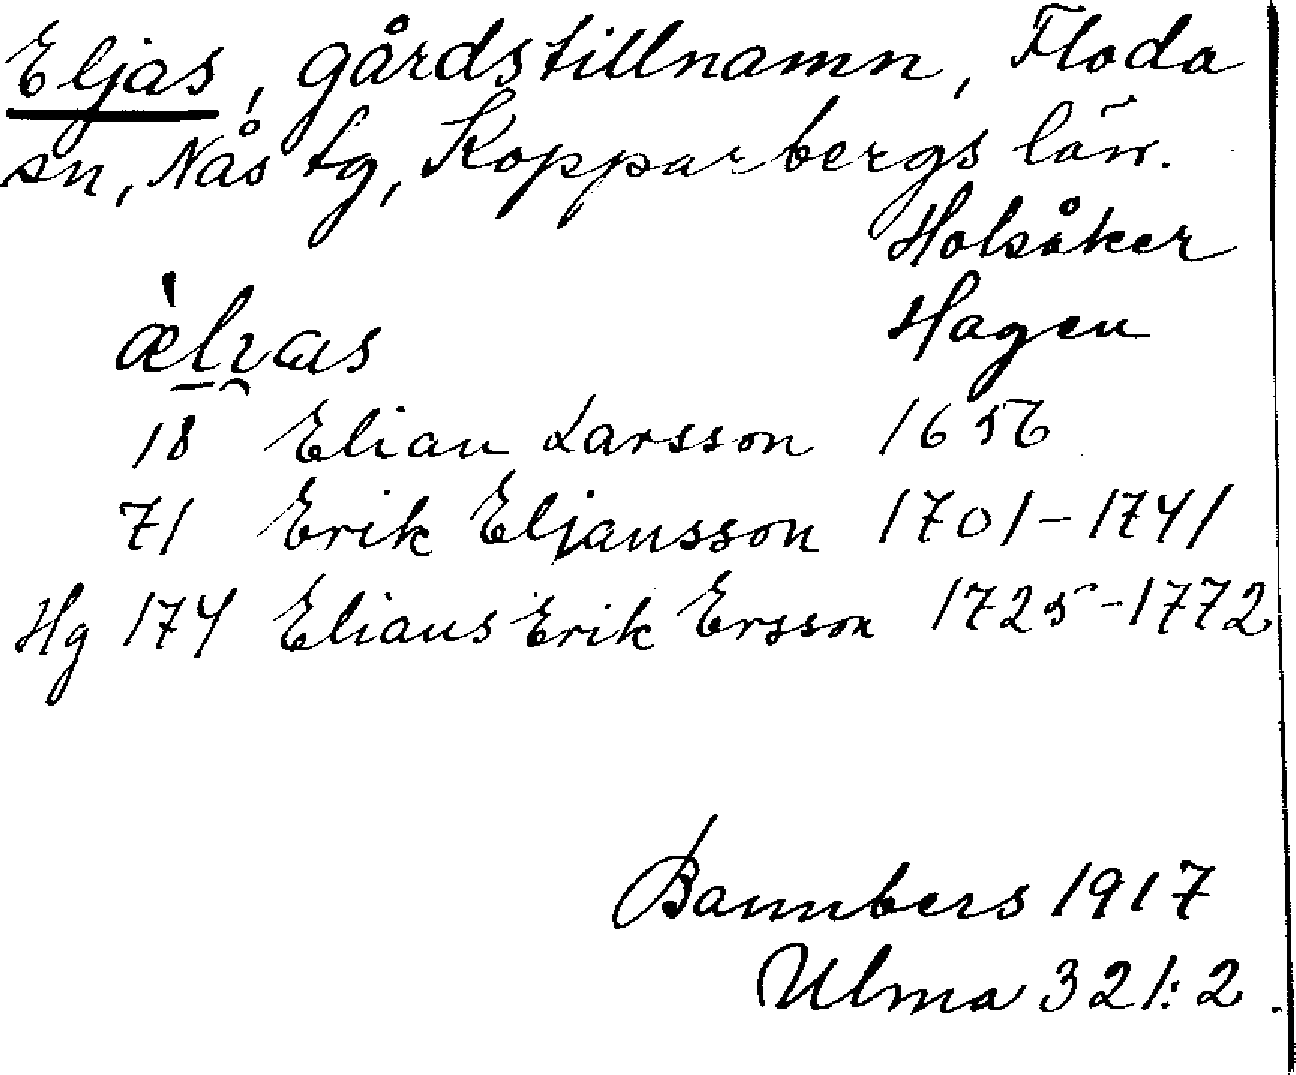 Eljas, gårdstillnamn, Floda
sn, Nås tg, Kopparbergs län.
Holsåker
Hagen
18 Elian Larsson 1656
71 Erik Eljansson 1701-1741
Hg 174 Elians Erik Ersson 1725-1772
Bannbers 1917
Ulma 321:2.